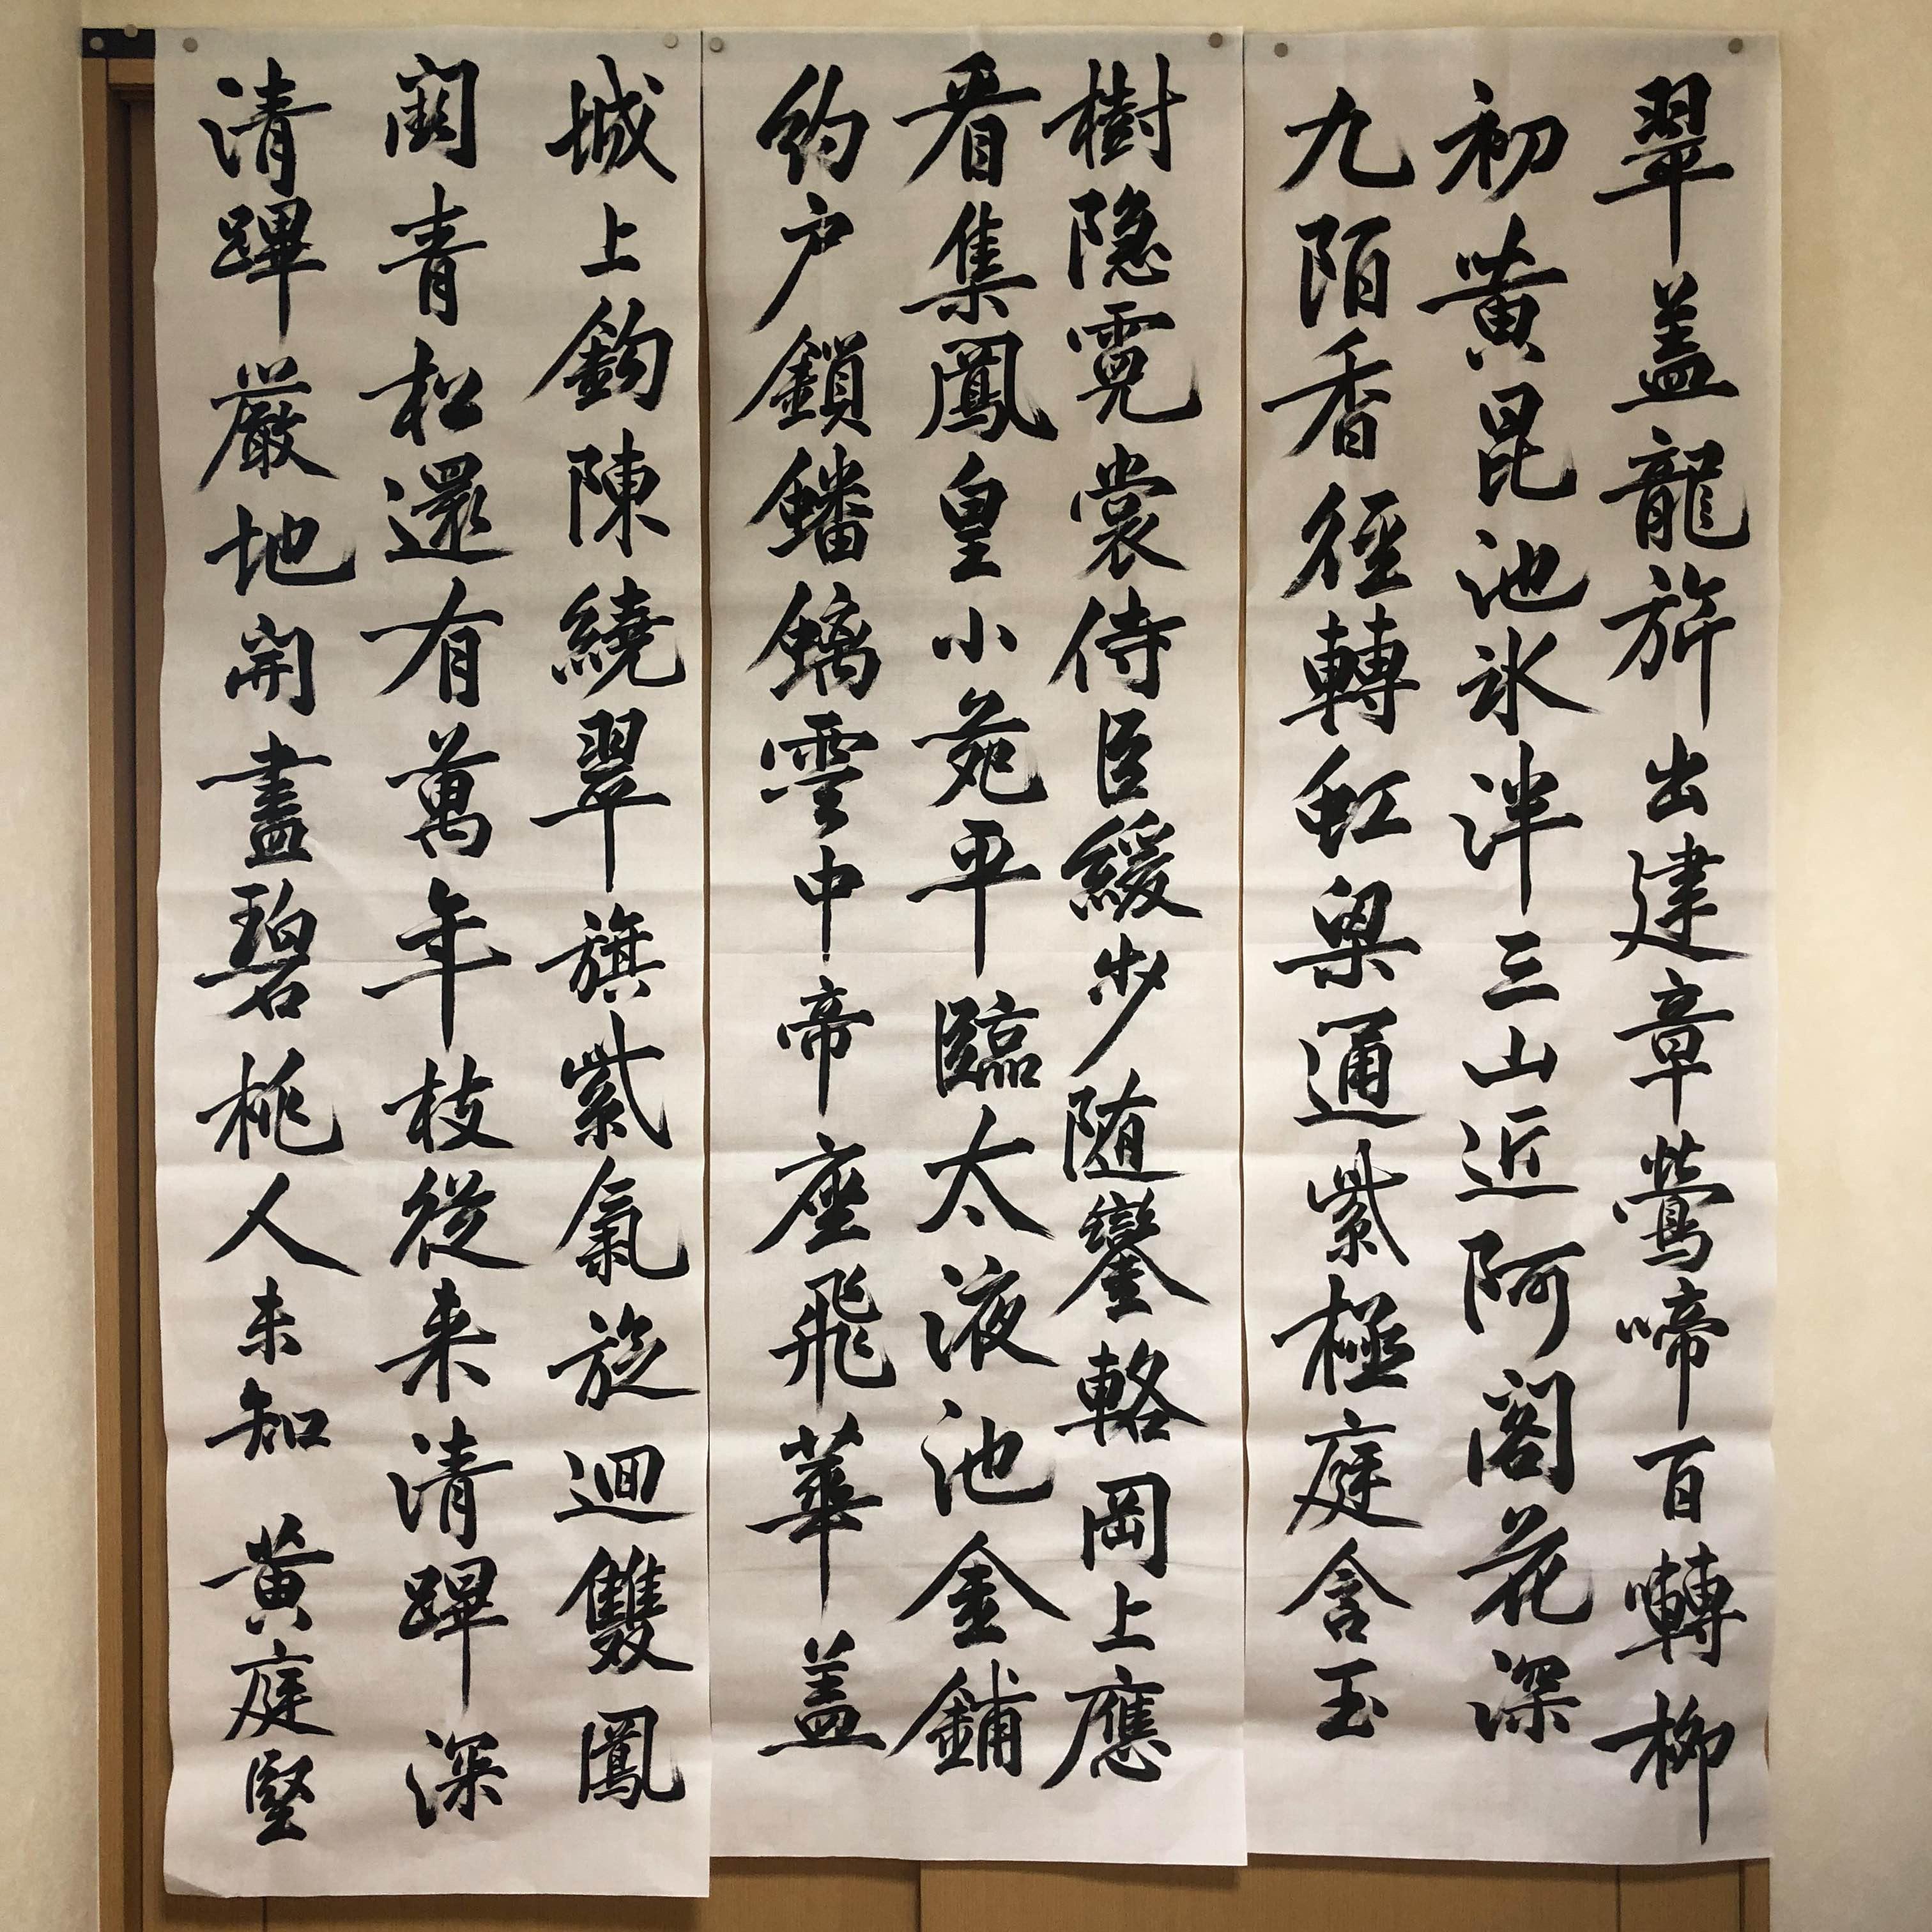 翠盖龍旂出建章鶯啼百囀柳
初黄昆池氷泮三山近阿閣花深
九陌香徑轉虹梁通紫極庭含玉
樹隠霓裳侍臣緩步随鑾輅岡上應
看集鳳皇小苑平臨太液池金鋪
約户鎖蟠螭雲中帝座飛華盖
城上鈎陳繞翠旗紫氣旋迴雙鳳
闕青松還有萬年枝從来清蹕深
清蹕嚴地開盡碧桃人未知 黄庭堅